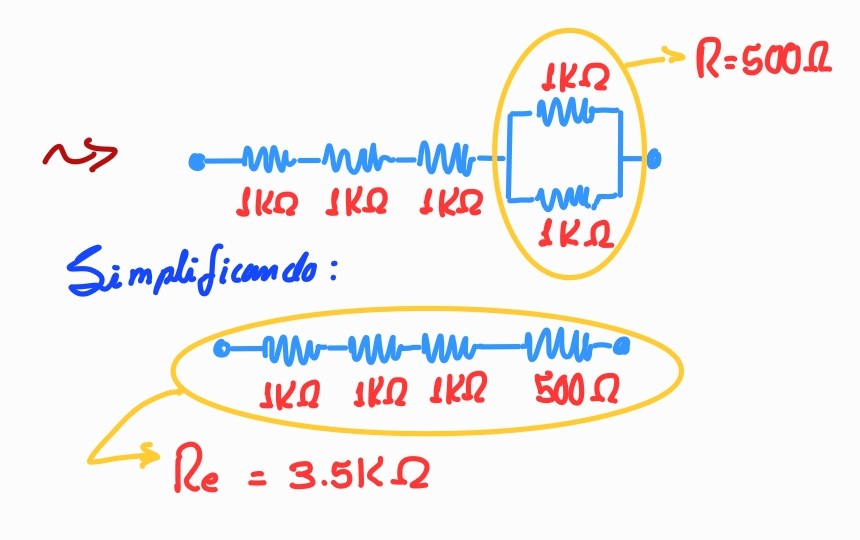 1KΩ
R=500Ω
1KΩ 1KΩ 1KΩ
1KΩ
Simplificando:
1KΩ 1KΩ 1KΩ 500Ω
Re = 3.5KΩ